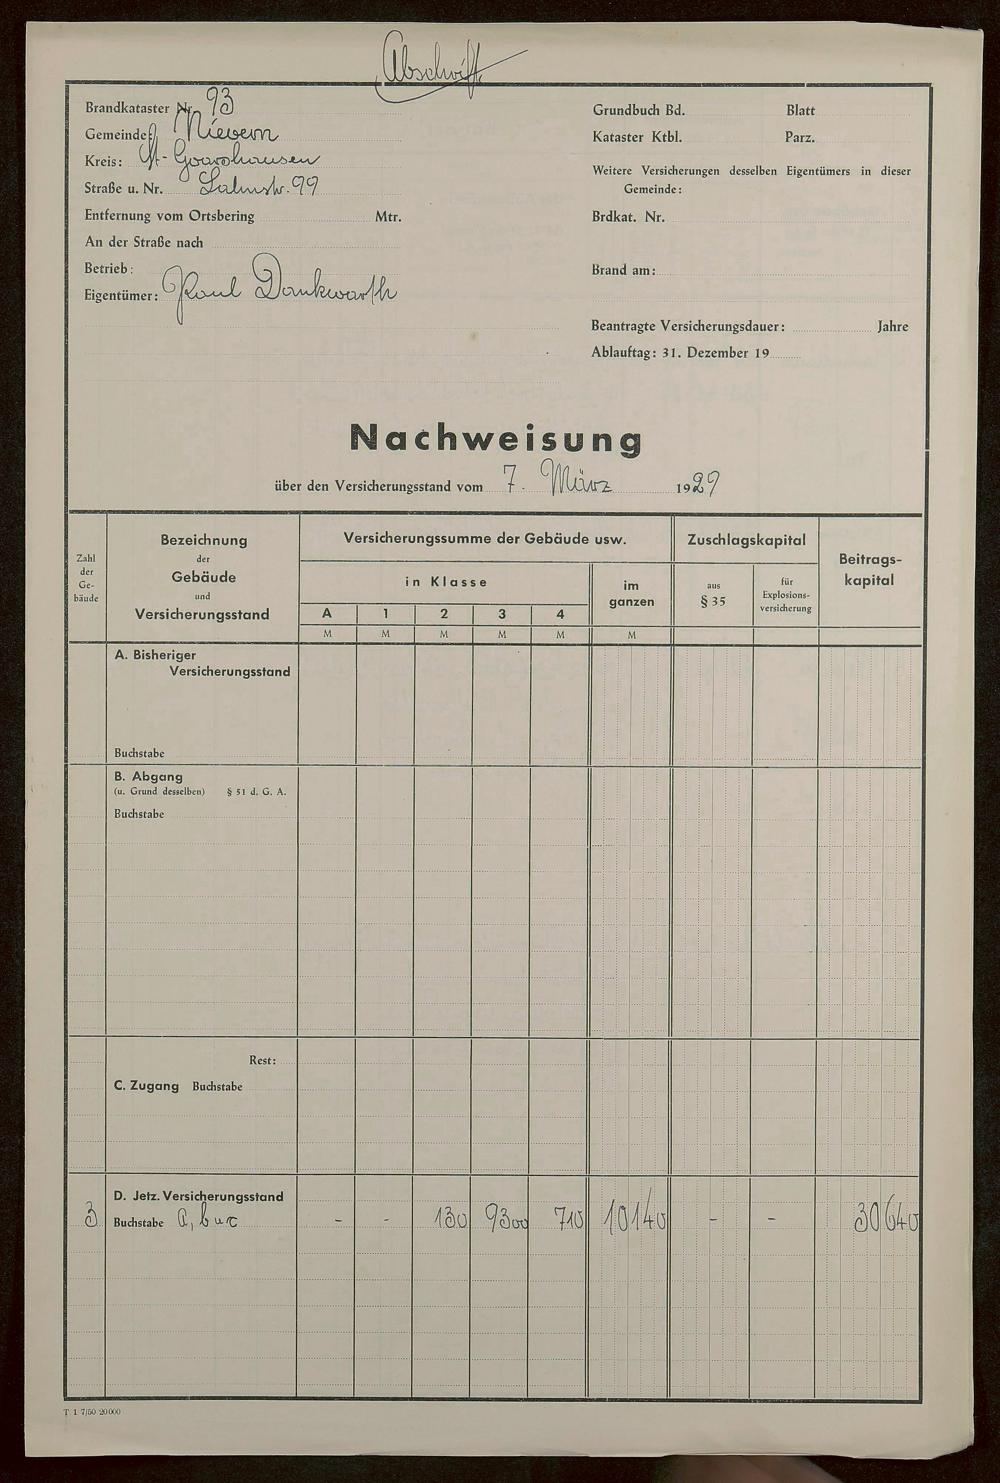 Abschrift
Brandkataster Nr. 93
Gemeinde: Nievern
Kreis: St. Goarshausen
Straße u. Nr. Lahnstr. 99
Entfernung vom Ortsbering Mtr.
An der Straße nach
Betrieb:
Eigentümer: Paul Dankwarth
Grundbuch Bd. Blatt
Kataster Ktbl. Parz.
Weitere Versicherungen desselben Eigentümers in dieser
Gemeinde:
Brdkat. Nr.
Brand am:
Beantragte Versicherungsdauer: Jahre
Ablauftag: 31. Dezember 19
Nachweisung
über den Versicherungsstand vom 7. März 1929
Zahl
der
Ge-
bäude
Bezeichnung
der
Gebäude
und
Versicherungsstand
Versicherungssumme der Gebäude usw.
in Klasse
A 1 2 3 4
M M M M M
im
ganzen
M
Zuschlagskapital
aus
§ 35
für
Explosions-
versicherung
Beitrags-
kapital
A. Bisheriger
Versicherungsstand
Buchstabe
B. Abgang
(u. Grund desselben) § 51 d. G. A.
Buchstabe
Rest:
C. Zugang Buchstabe
D. Jetz. Versicherungsstand
3 Buchstabe a, b u c - - 130 9300 710 10140 - - 30640
T 1 7/50 20000